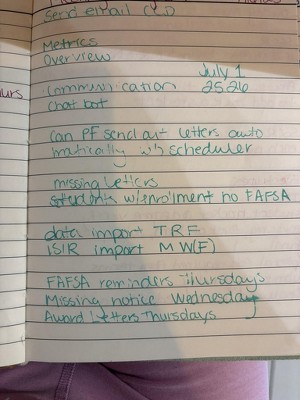 Send email
Metrics
Overview
July 1
Communication 2526
Chat bot
Can PF send out letters auto
matically w/ scheduler
missing letters
w/enrolment no FAFSA
data import TRF
ISIR import MW(F)
FAFSA reminders Thursdays
Missing notice Wednesday
Award Letters Thursdays